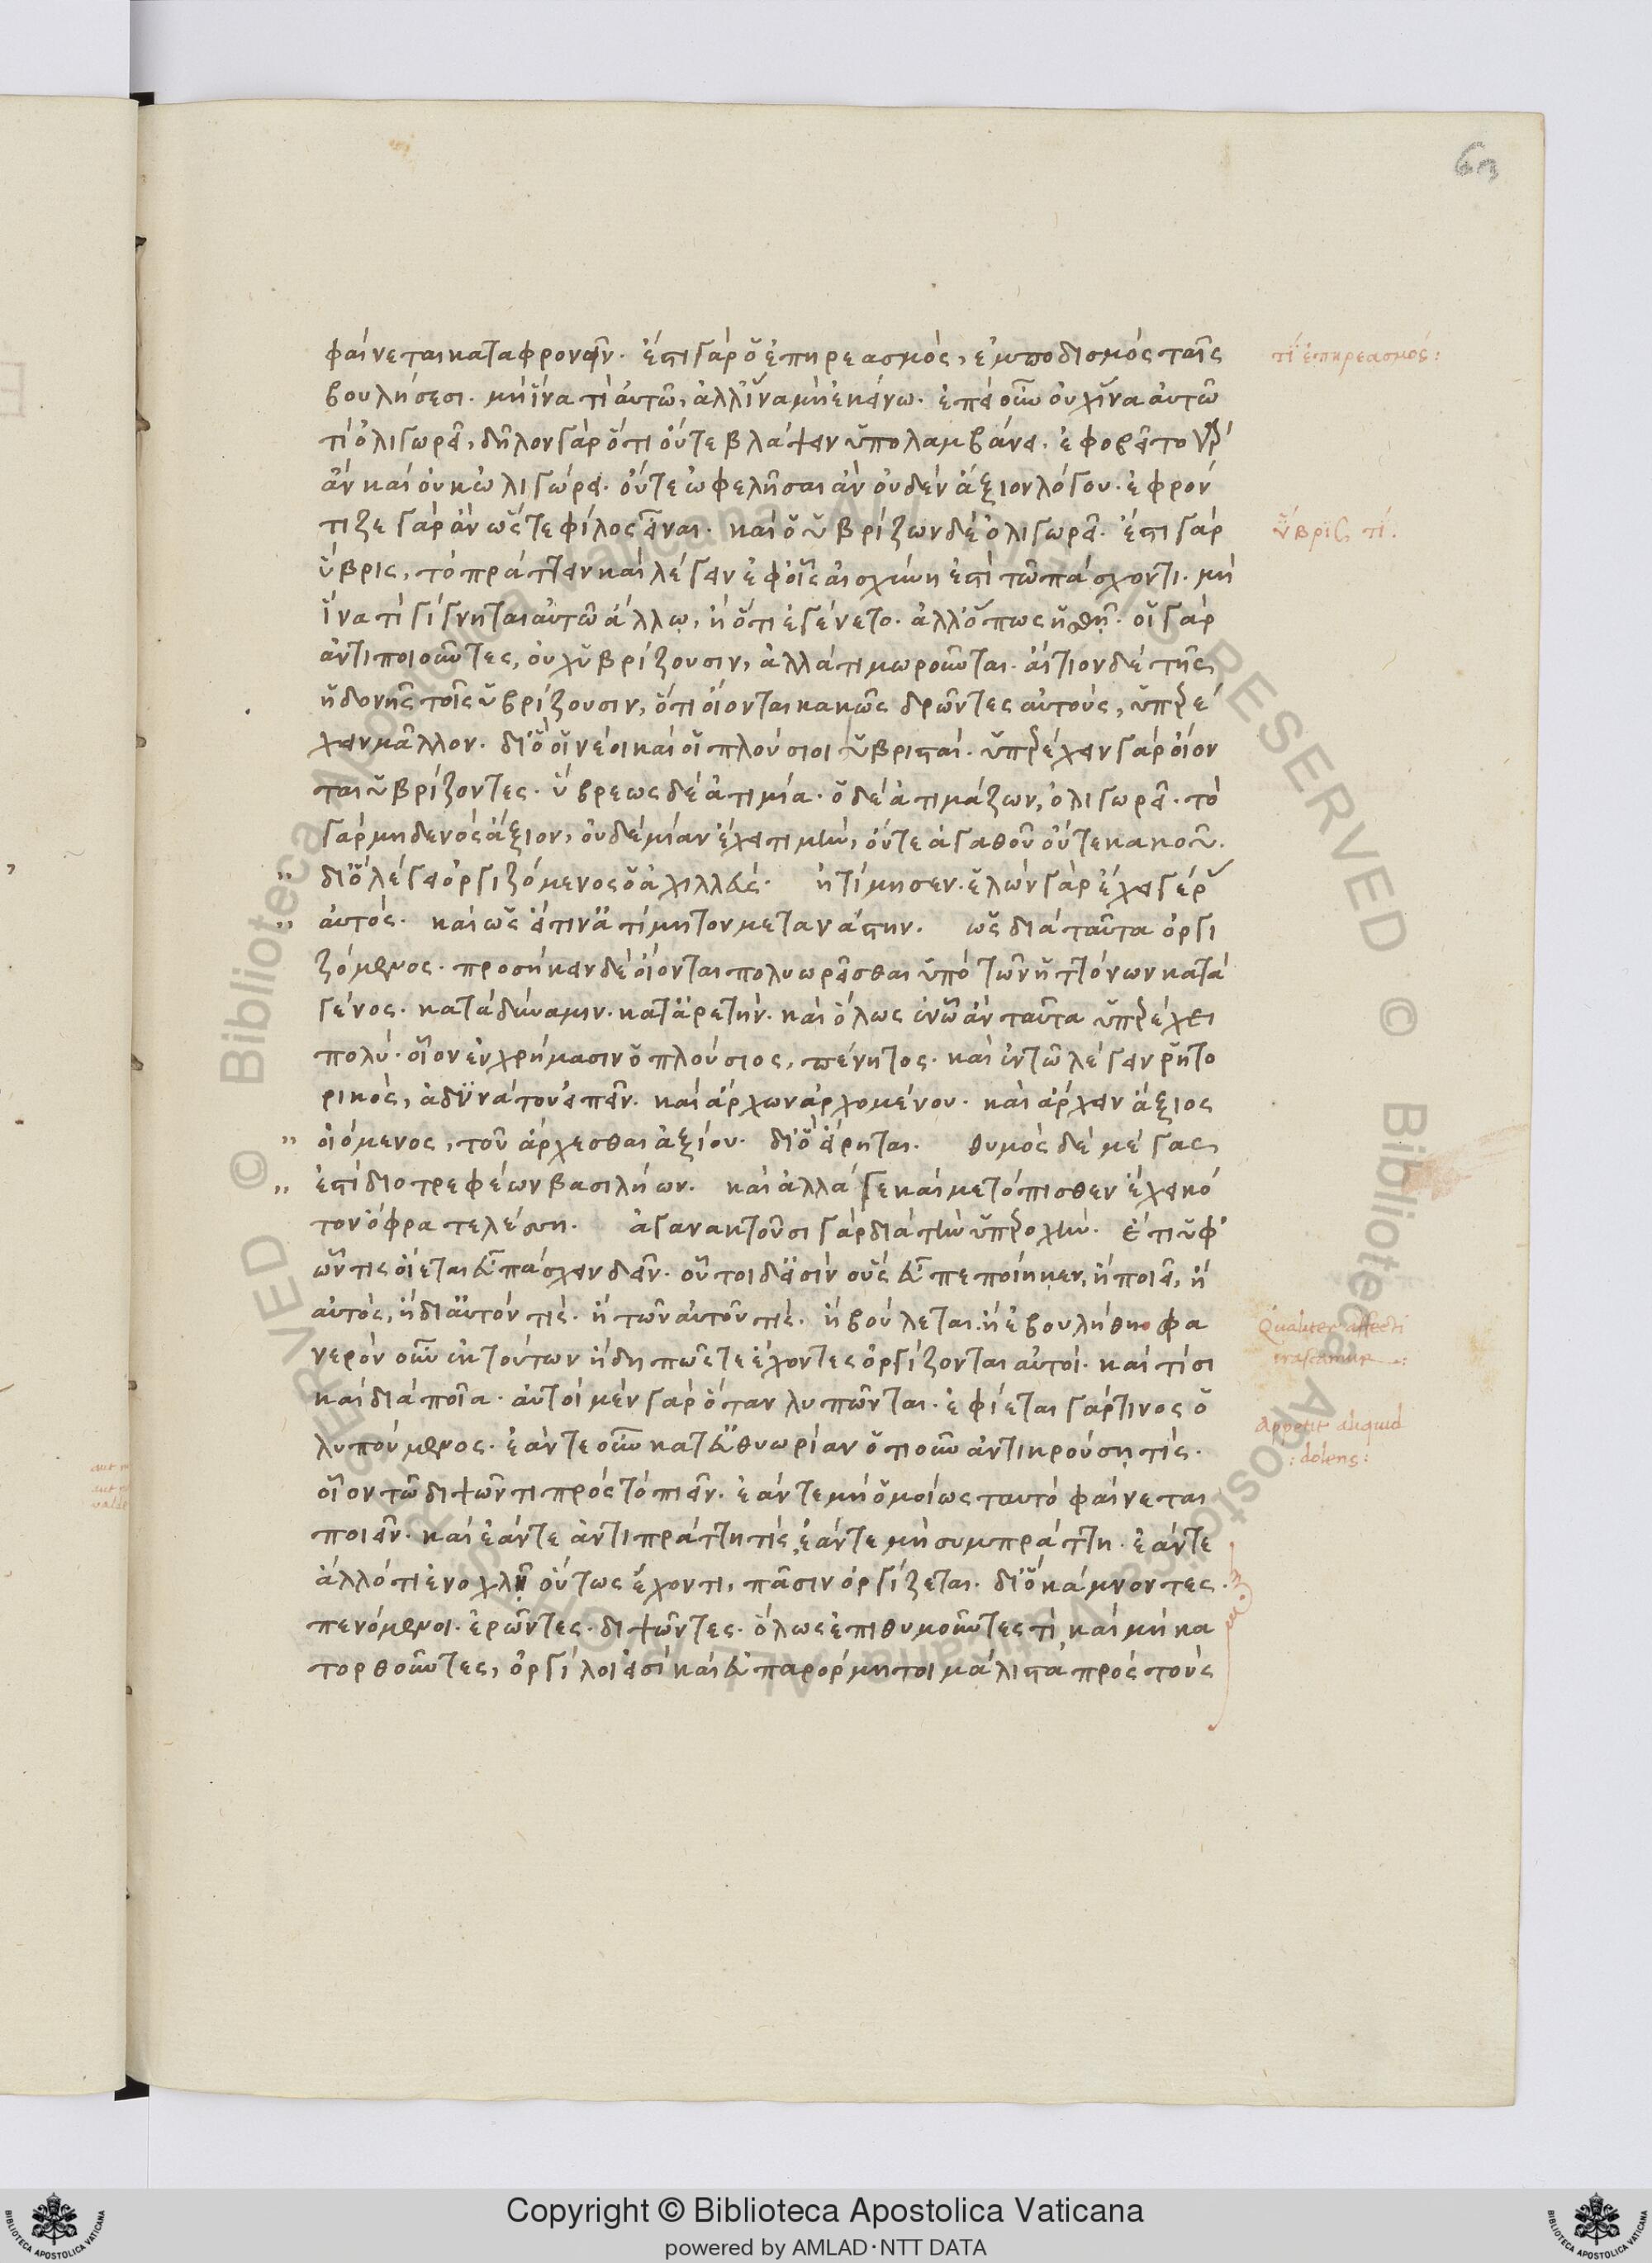 63
φαίνεται καταφρονεῖν· ἔστι γὰρ ὁ ἐπηρεασμός, ἐμποδισμὸς ταῖς
τί ἐπηρεασμός:
βουλήσεσι· μὴ ἵνα τὶ αὐτῶ, ἀλλ' ἵνα μὴ ἐκείνω· ἐπεὶ οὖν οὐχ ἵνα αὐτῶ
τὶ ὀλιγωρεῖ, δῆλον γὰρ ὅτι οὔτε βλάψειν ὑπολαμβάνει· ἐφοβεῖτο γὰρ
ἂν καὶ οὐκ ὠλιγώρει· οὔτε ὠφελῆσαι ἂν οὐδὲν ἄξιον λόγου· ἐφρόν
τιζε γὰρ ἂν ὥστε φίλος εἶναι· καὶ ὁ ὑβρίζων δὲ ὀλιγωρεῖ· ἔστι γὰρ
ὕβρις τί.
ὕβρις, τὸ πράττειν καὶ λέγειν ἐφ' οἷς αἰσχύνη ἐστὶ τῶ πάσχοντι· μὴ
ἵνα τὶ γίγνηται αὐτῶ ἄλλῳ, ἢ ὅτι ἐγένετο· ἀλλ' ὅπως ἡσθῇ· οἱ γὰρ
ἀντιποιοῦντες, οὐχ ὑβρίζουσιν, ἀλλὰ τιμωροῦνται· αἴτιον δὲ τῆς
ἡδονῆς τοῖς ὑβρίζουσιν, ὅτι οἴονται κακῶς δρῶντες αὐτοὺς, ὑπερέ
χειν μᾶλλον· διὸ οἱ νέοι καὶ οἱ πλούσιοι ὑβρισταί· ὑπερέχειν γὰρ οἴον
ται ὑβρίζοντες· ὕβρεως δὲ ἀτιμία· ὁ δὲ ἀτιμάζων, ὀλιγωρεῖ· τὸ
γὰρ μηδενὸς ἄξιον, οὐδεμίαν ἔχει τιμὴν, οὔτε ἀγαθοῦ οὔτε κακοῦ.
" διὸ λέγει ὀργιζόμενος ὁ ἀχιλλεύς· ἠτίμησεν· ἑλὼν γὰρ ἔχει γέρας
" αὐτός· καὶ ὡς εἴ τιν' ἀτίμητον μετανάστην· ὡς διὰ ταῦτα ὀργι
ζόμενος· προσήκειν δὲ οἴονται πολυωρεῖσθαι ὑπὸ τῶν ἡττόνων κατὰ
γένος· κατὰ δύναμιν· κατ' ἀρετήν· καὶ ὅλως ἐν ὧ ἂν ταῦτα ὑπερέχει
πολύ· οἷον ἐν χρήμασιν ὁ πλούσιος, πένητος· καὶ ἐν τῶ λέγειν ῥητο
ρικὸς, ἀδυνάτου εἰπεῖν· καὶ ἄρχων ἀρχομένου· καὶ ἄρχειν ἄξιος
" οἰόμενος, τοῦ ἄρχεσθαι ἀξίου· διὸ εἴρηται· θυμὸς δὲ μέγας
" ἐστὶ διοτρεφέων βασιλήων· καὶ ἀλλά γε καὶ μετόπισθεν ἔχει κό
τον ὄφρα τελέσση· ἀγανακτοῦσι γὰρ διὰ τὴν ὑπεροχήν· ἔτι ὑφ'
ὧν τις οἴεται εὖ πάσχειν δεῖν· οὗτοι δ' εἰσὶν οὓς εὖ πεποίηκεν, ἢ ποιεῖ, ἢ
αὐτὸς, ἢ δι' αὐτόν τις· ἢ τῶν αὐτοῦ τις· ἢ βούλεται· ἢ ἐβουλήθη· φα
Qualiter affecti
νερὸν οὖν ἐκ τούτων ἤδη πῶς τε ἔχοντες ὀργίζονται αὐτοί· καὶ τίσι
irascamur:
καὶ διὰ ποῖα· αὐτοὶ μὲν γὰρ ὅταν λυπῶνται· ἐφίεται γάρ τινος ὁ
Appetit aliquid
λυπούμενος· ἐάν τε οὖν κατ' εὐθυωρίαν ὁτιοῦν ἀντικρούσῃ τίς·
: dolens:
οἷον τῶ διψῶντι πρὸς τὸ πιεῖν· ἐάν τε μὴ ὁμοίως ταυτὸ φαίνεται
ποιεῖν· καὶ ἐάν τε ἀντιπράττη τίς, ἐάν τε μὴ συμπράττη· ἐάν τε
ἄλλό τι ἐνοχλῇ οὕτως ἔχοντι, πᾶσιν ὀργίζεται· διὸ κάμνοντες·
πενόμενοι· ἐρῶντες· διψῶντες· ὅλως ἐπιθυμοῦντες τὶ καὶ μὴ κα
τορθοῦντες, ὀργίλοι εἰσὶ καὶ εὐπαρόρμητοι μάλιστα πρὸς τοὺς
Copyright © Biblioteca Apostolica Vaticana
powered by AMLAD·NTT DATA